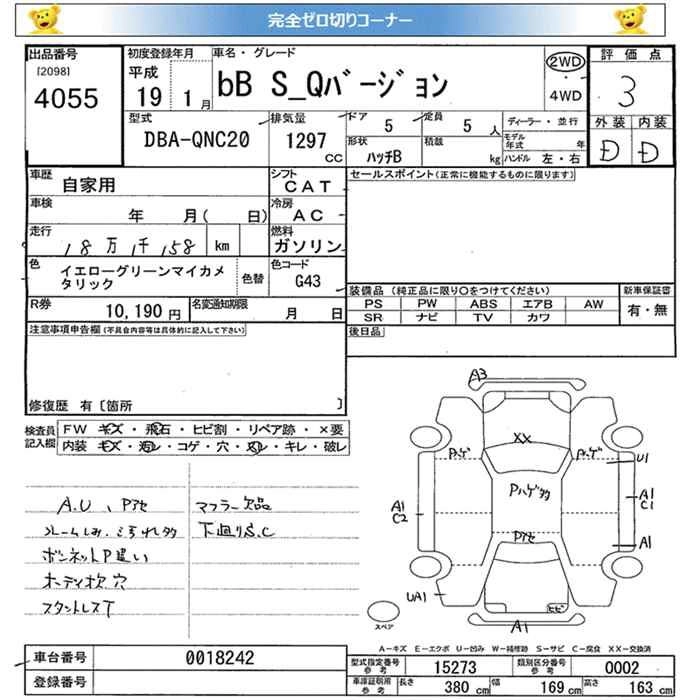 完全ゼロ切りコーナー
出品番号
[2098]
4055
初度登録年月
平成
19 1月
車名・グレード
bB S_Qバージョン
2WD
4WD
評価点
3
外装 内装
D D
型式
DBA-QNC20
排気量
1297
CC
ドア
5
定員
5 人
形状
ハッチB
積載
kg
ディーラー・並行
モデル年式 年
ハンドル 左・右
車歴
自家用
シフト
CAT
セールスポイント(正常に機能するものに限ります)
車検
年 月( 日)
冷房
AC
走行
18万1千158 km
燃料
ガソリン
色
イエローグリーンマイカメタリック
色替
色コード
G43
R券
10,190円
名変通知期限
月 日
装備品 (純正品に限り○をつけてください)
PS PW ABS エアB AW
SR ナビ TV カワ
新車保証書
有・無
後日品
注意事項申告欄(不具合内容等は具体的に記入して下さい)
修復歴 有〔箇所 〕
検査員記入欄
FW キズ・飛石・ヒビ割・リペア跡・×要
内装 キズ・汚レ・コゲ・穴・凹・キレ・破レ
A.U、Pアセ
ボンネットP違い
穴
マフラー欠品
下廻りS.C
A3
XX
Pハゲ
Pハゲ
U1
A1
C2
A1
C1
A1
Pアセ
UA1
ヒビ
A1
スペア
A-キズ E-エクボ U-凹み W-補修跡 S-サビ C-腐食 XX-交換済
車台番号
0018242
登録番号
型式指定番号
参考
15273
類別区分番号
参考
0002
車庫証明用
参考
長さ
380 cm
幅
169 cm
高さ
163 cm